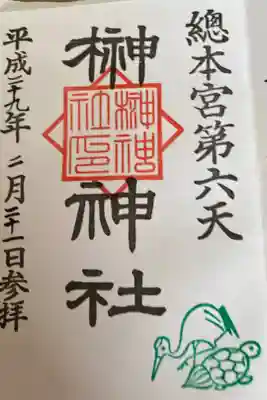 總本宮第六天
榊神社
榊神
社印
平成二十九年二月二十一日参拝